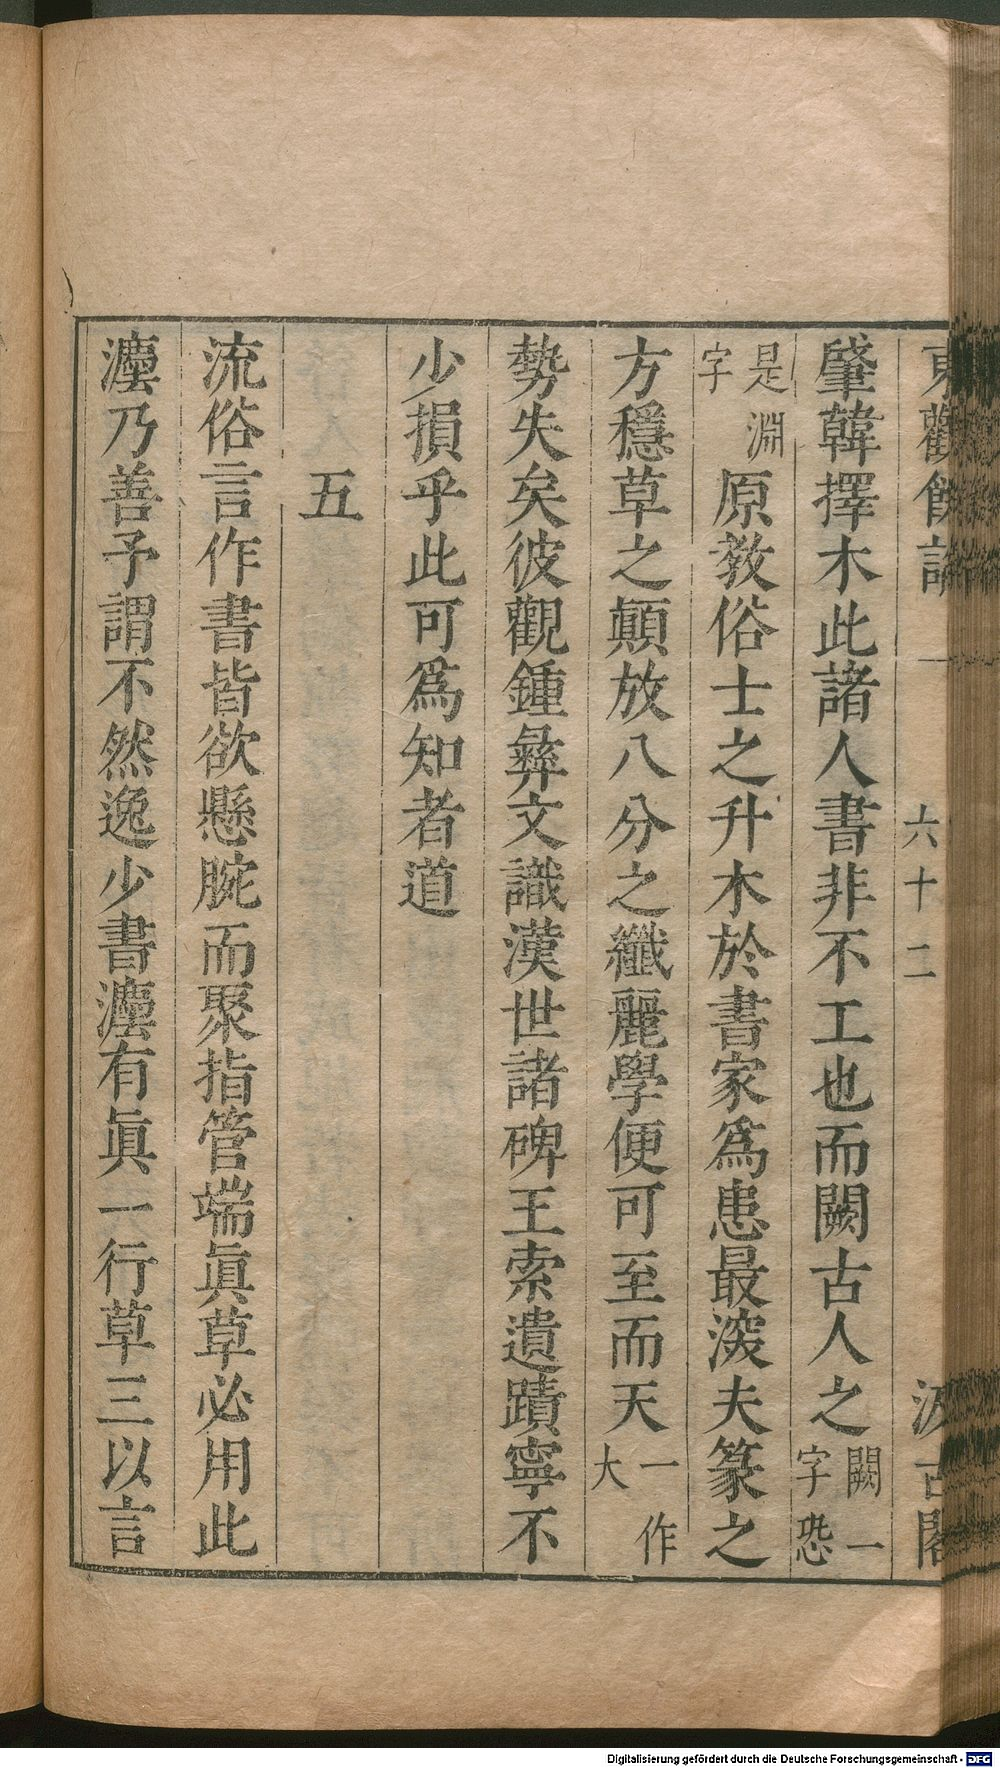 東觀餘論 一 六十二 汲古閣
肇韓擇木此諸人書非不工也而闕古人之闕一字恐
是淵字原教俗士之升木於書家爲患最深夫篆之
方穩草之顚放八分之纖麗學便可至而天一作大
勢失矣彼觀鍾彝文識漢世諸碑王索遺蹟寧不
少損乎此可爲知者道
五
流俗言作書皆欲懸腕而聚指管端眞草必用此
灋乃善予謂不然逸少書灋有眞一行草三以言
Digitalisierung gefördert durch die Deutsche Forschungsgemeinschaft - DFG